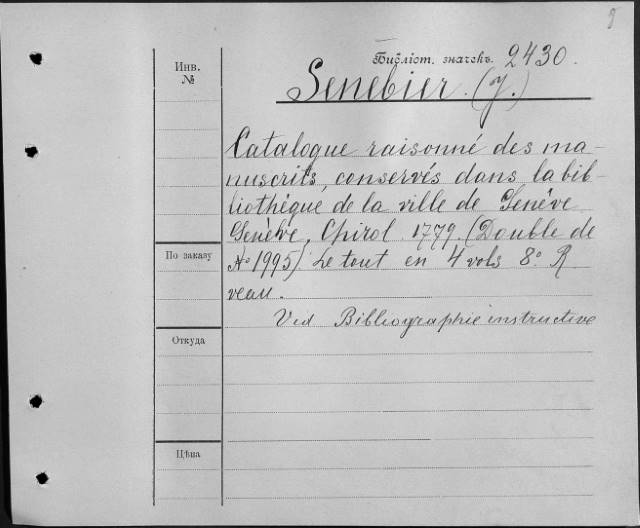 Библіот. значекъ 2430.
Инв.
№
Senebier. (J.)
Catalogue raisonné des ma-
nuscrits, conservés dans la bib-
liothéque de la ville de Genéve
Genéve, Chirol. 1779. (Double de
№ 1995) Le tout en 4 vols 8º. R
veau.
Vid Bibliographie instructive
По заказу
Откуда
Цѣна